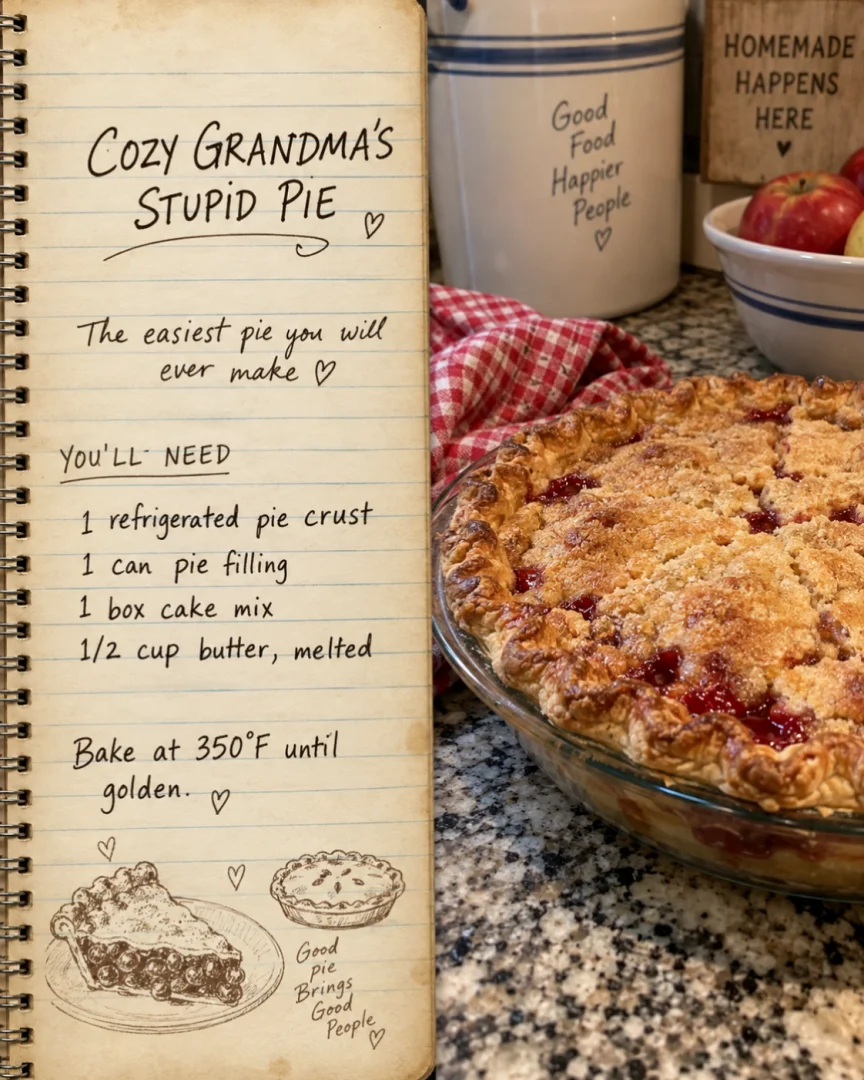 COZY GRANDMA'S
STUPID PIE
The easiest pie you will
ever make
YOU'LL NEED
1 refrigerated pie crust
1 can pie filling
1 box cake mix
1/2 cup butter, melted
Bake at 350°F until
golden.
Good
pie
Brings
Good
People
Good
Food
Happier
People
HOMEMADE
HAPPENS
HERE